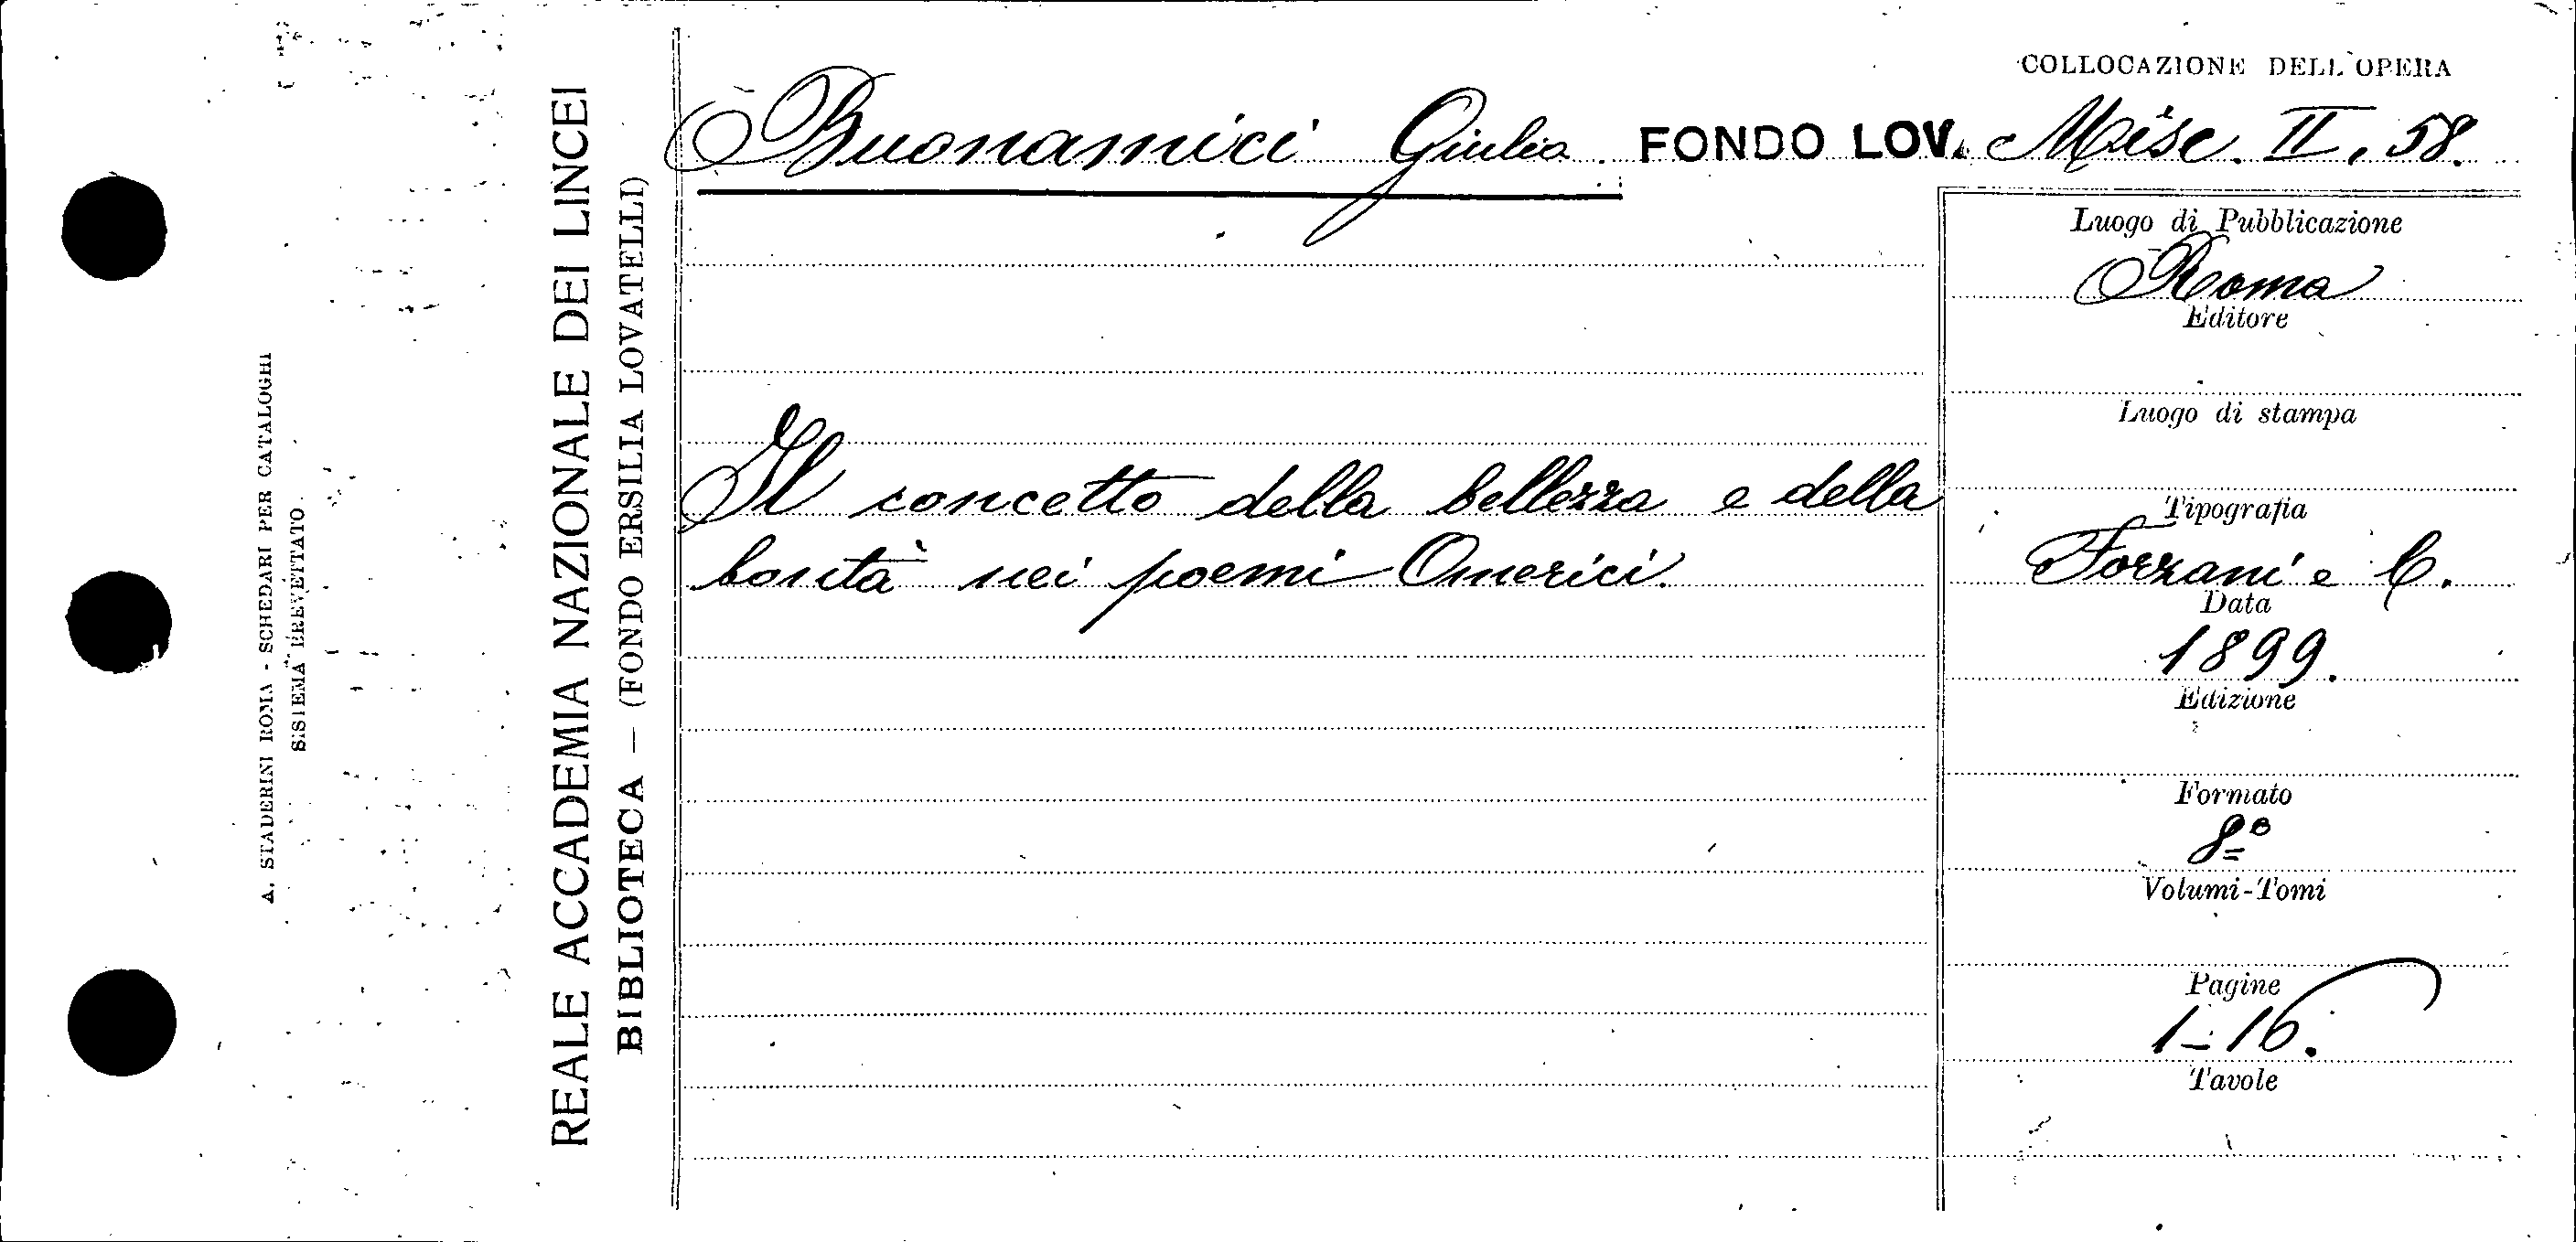 A. STADERINI ROMA - SCHEDARI PER CATALOGHI
SISTEMA BREVETTATO
REALE ACCADEMIA NAZIONALE DEI LINCEI
BIBLIOTECA — (FONDO ERSILIA LOVATELLI)
COLLOCAZIONE DELL'OPERA
Buonamici Giulia FONDO LOV. Misc. II, 58.
Il concetto della bellezza e della
bontà nei poemi Omerici.
Luogo di Pubblicazione
Roma
Editore
Luogo di stampa
Tipografia
Forzani e C.
Data
1899.
Edizione
Formato
8º
Volumi-Tomi
Pagine
1-16.
Tavole